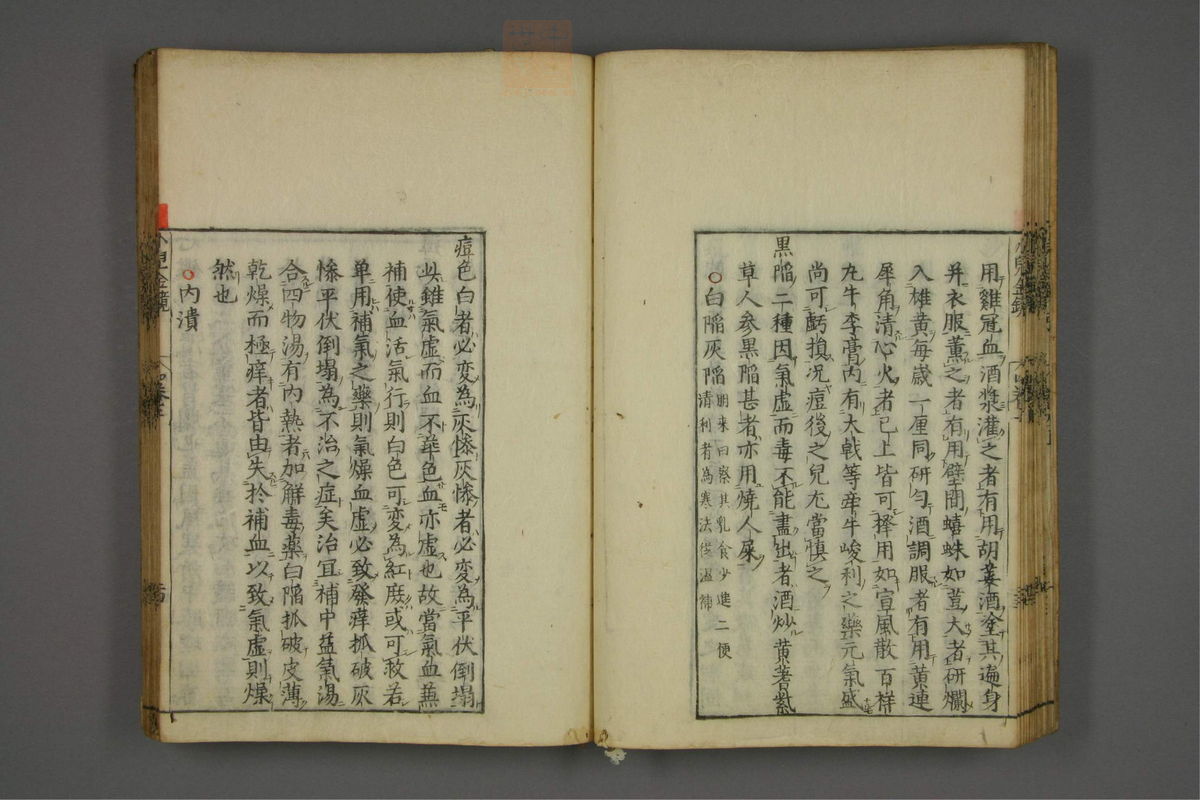 用雞冠血酒漿灌之者有用胡荽酒塗其遍身
并衣服薰之者有用壁間蟢蛛如荳大者研爛
入雄黄每歲一厘同研勻酒調服者有用黄連
犀角清心火者已上皆可擇用如宣風散百祥
丸牛李膏内有大戟等牽牛峻利之藥元氣盛
尚可虧損况痘後之兒尤當慎之
黒陷二種因氣虛而毒不能盡出者酒炒黄蓍紫
草人参黒陷甚者亦用燒人屎
○白陷灰陷
朋来曰察其乳食少進二便
清利者為寒法從温補
痘色白者必変為灰惨灰惨者必変為平伏倒塌
此雖氣虛而血不華色血亦虛也故當氣血蕪
補使血活氣行則白色可変為紅庻或可救若
单用補氣之藥則氣燥血虛必致發痒抓破灰
惨平伏倒塌為不治之症矣治冝補中益氣湯
合四物湯有内熱者加解毒藥白陷抓破皮薄
乾燥而極痒者皆由失於補血以致氣虛則燥
然也
○内潰
小兒金鏡